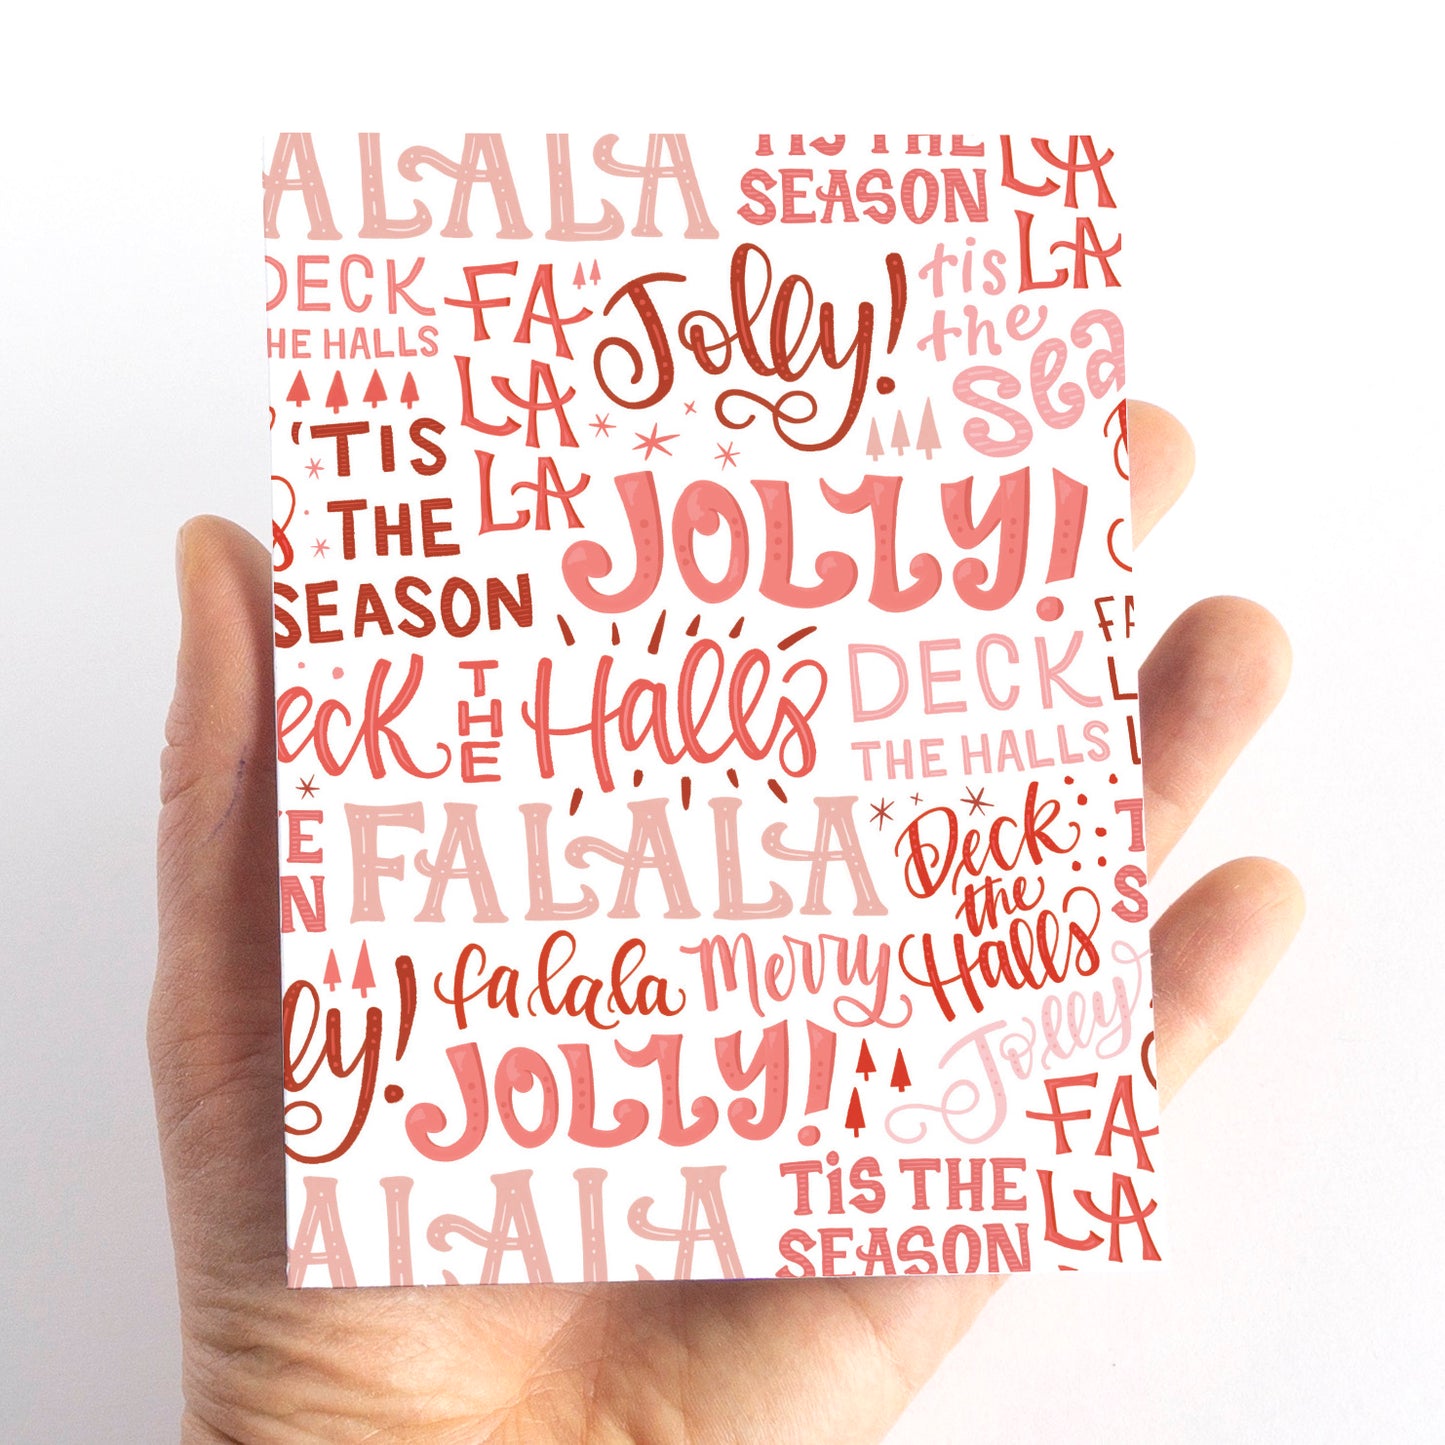 ALALA
TIS THE
SEASON
LA
LA
DECK
THE HALLS
FA
LA
LA
Jolly!
tis
the
Sea
'TIS
THE
SEASON
JOLLY!
eck THE Halls
DECK
THE HALLS
FA
L
L
E
N
FALALA
Deck
the
Halls
T
S
ly!
falalala
Merry
Jolly
JOLLY!
FA
LA
ALALA
TIS THE
SEASON